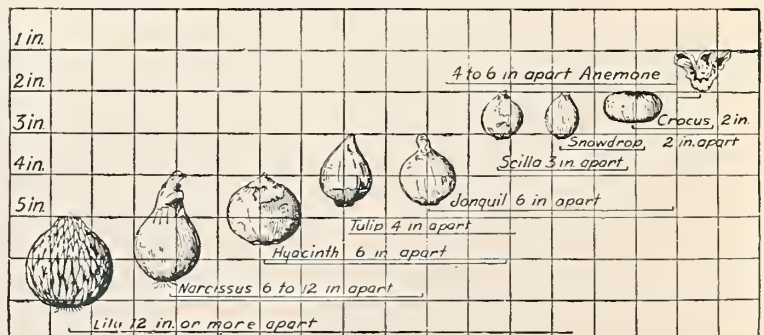 1 in.
4 to 6 in apart Anemone
2 in.
Crocus, 2 in.
3 in.
Snowdrop 2 in. apart
Scilla 3 in. apart
4 in.
Jonquil 6 in apart
5 in.
Tulip 4 in apart
Hyacinth 6 in apart
Narcissus 6 to 12 in apart
Lily 12 in. or more apart